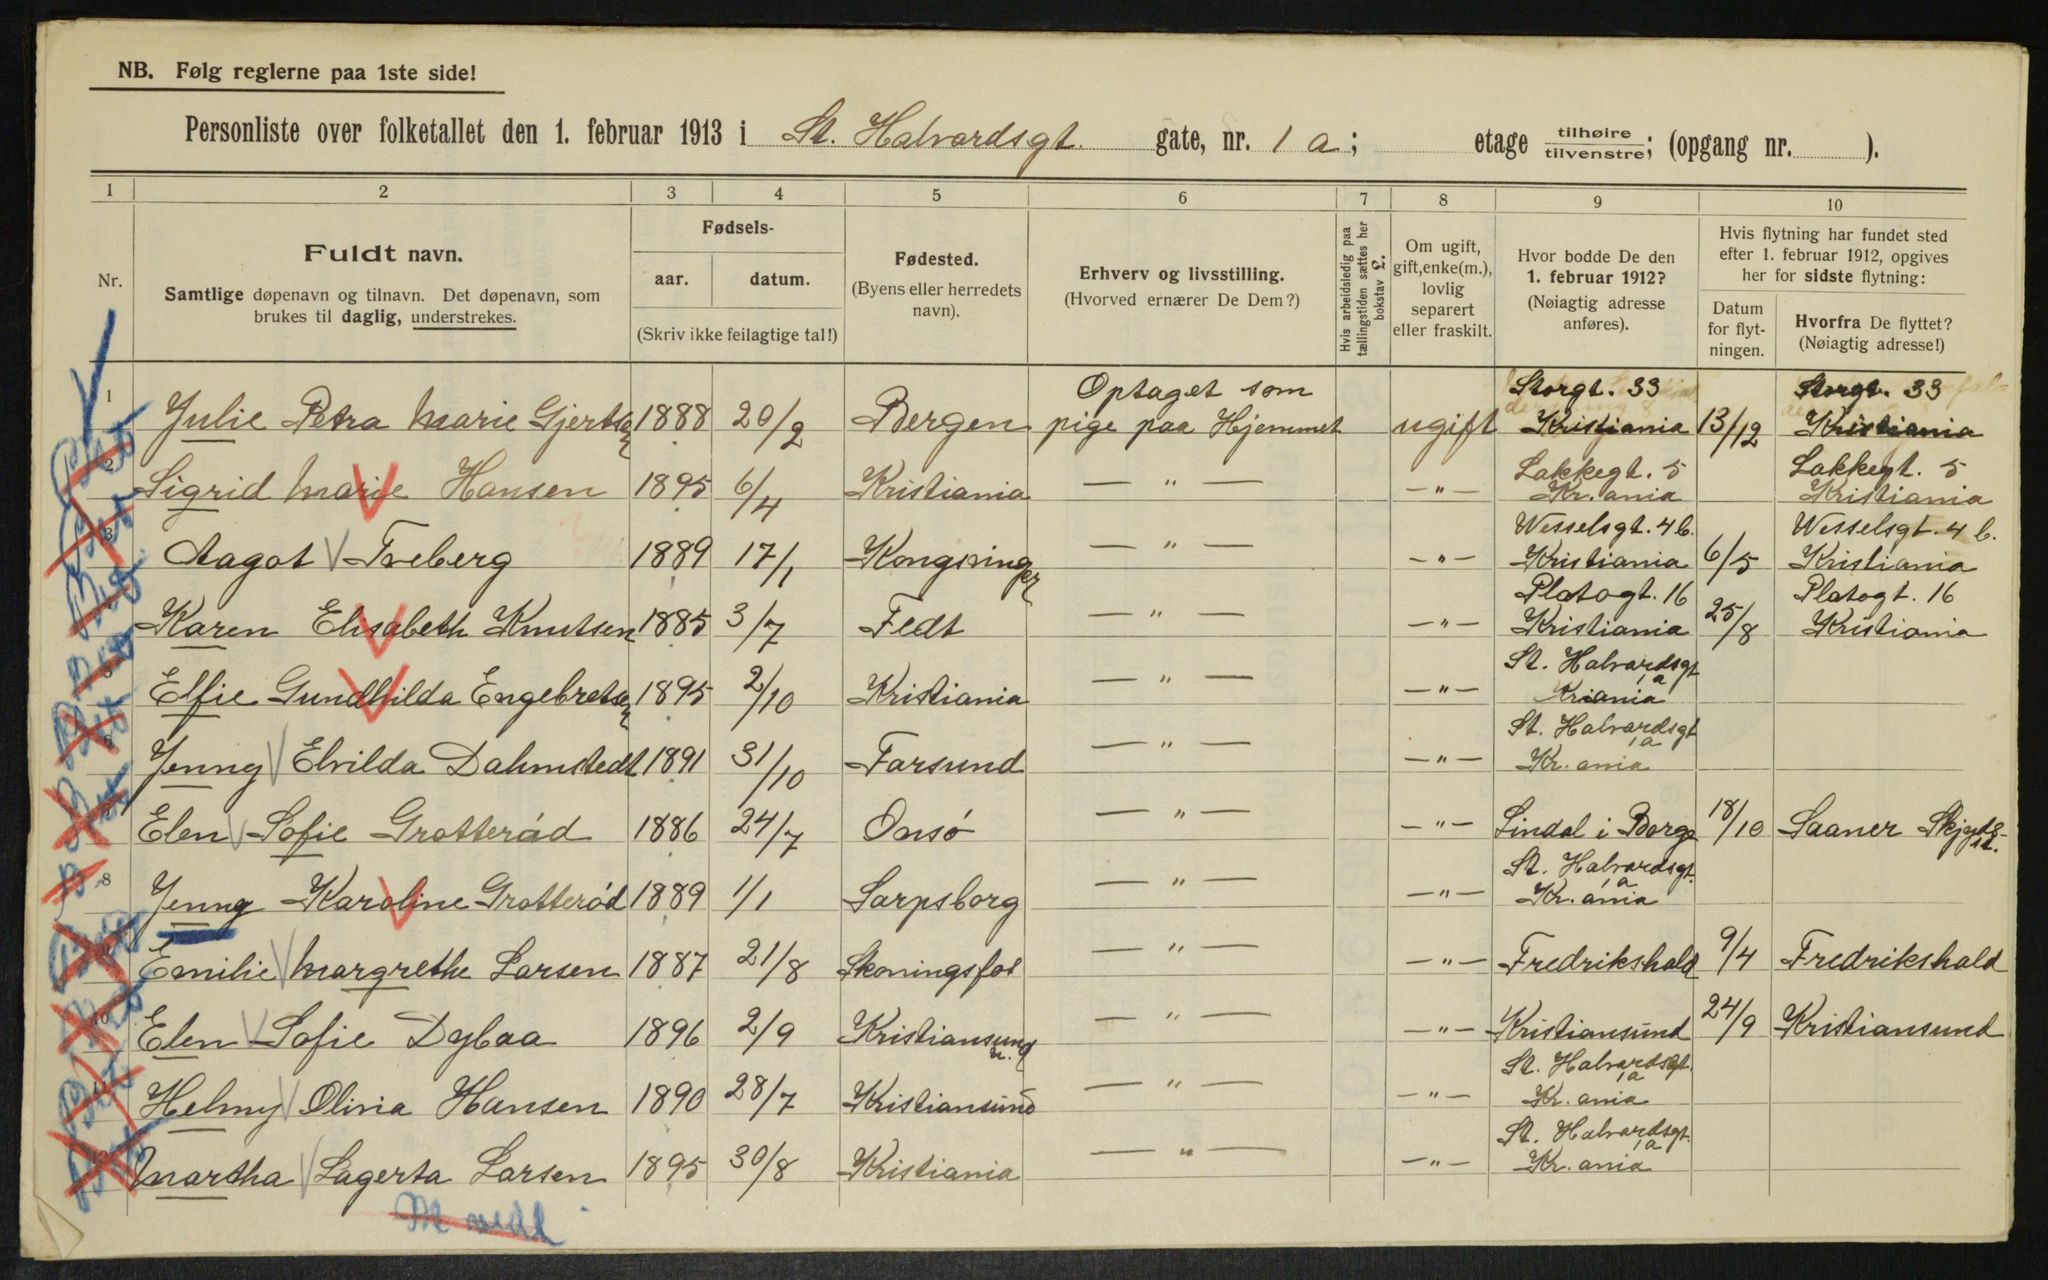 NB. Følg reglerne paa 1ste side!
Personliste over folketallet den 1. februar 1913 i St. Halvardsgt. gate, nr. 1 a; etage tilhøire / tilvenstre; (opgang nr. ).
1 2 3 4 5 6 7 8 9 10
Nr.
Fuldt navn.
Samtlige døpenavn og tilnavn. Det døpenavn, som
brukes til daglig, understrekes.
Fødsels-
aar. datum.
(Skriv ikke feilagtige tal!)
Fødested.
(Byens eller herredets
navn).
Erhverv og livsstilling.
(Hvorved ernærer De Dem?)
Hvis arbeidsledig paa
tællingstiden sættes her
bokstav L.
Om ugift,
gift, enke(m.),
lovlig
separert
eller fraskilt.
Hvor bodde De den
1. februar 1912?
(Nøiagtig adresse
anføres).
Hvis flytning har fundet sted
efter 1. februar 1912, opgives
her for sidste flytning:
Datum
for flyt-
ningen.
Hvorfra De flyttet?
(Nøiagtig adresse!)
1 Julie Petra Marie Gjertsen 1888 20/2 Bergen Optaget som pige paa Hjemmet ugift Storgt. 33 Kristiania 13/12 Storgt. 33 Kristiania
2 Sigrid Marie Hansen 1895 6/4 Kristiania — " — — " — Lakkegt. 5 Kr.ania Lakkegt. 5 Kristiania
3 Aagot Treberg 1889 17/1 Kongsvinger — " — — " — Wesselsgt. 4 b. Kristiania 6/5 Wesselsgt. 4 b. Kristiania
4 Karen Elisabeth Knutsen 1885 3/7 Fedt — " — — " — Platogt. 16 Kristiania 25/8 Platogt. 16 Kristiania
5 Elfie Gundhilda Engebretsen 1895 2/10 Kristiania — " — — " — St. Halvardsgt 1a Kriania
6 Jenny Elvilda Dahmstedt 1891 31/10 Farsund — " — — " — St. Halvardsgt 1a Kr.ania
7 Elen Sofie Grotterød 1886 24/7 Onsø — " — — " — Lindal i Borge 18/10 Saaner Skjydsst.
8 Jenny Karoline Grotterød 1889 1/1 Sarpsborg — " — — " — St. Halvardsgt. 1a Kr.ania
9 Emilie Margrethe Larsen 1887 21/8 Skoningsfos — " — — " — Fredrikshald 9/4 Fredrikshald
10 Elen Sofie Dybaa 1896 2/9 Kristiansund n. — " — — " — Kristiansund 24/9 Kristiansund
11 Helmy Olivia Hansen 1890 28/7 Kristiansund — " — — " — St. Halvardsgt. 1a Kr.ania
12 Martha Lagerta Larsen 1895 30/8 Kristiania — " — — " — St. Halvardsgt. 1a Kr.ania